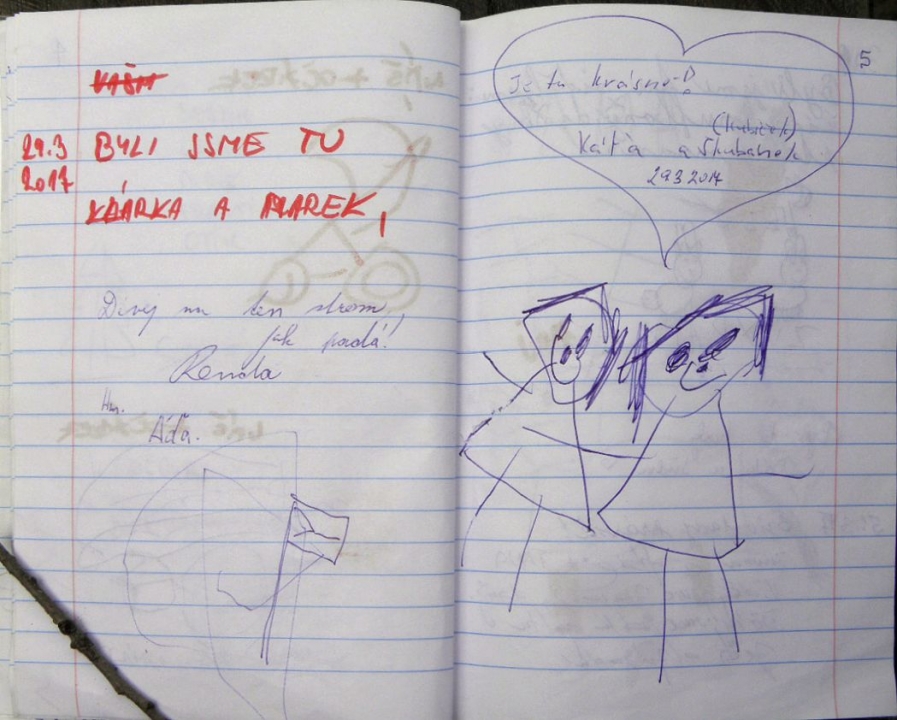 29.3 BYLI JSME TU
2017 KLÁRKA A MAREK,
Dívej na ten strom,
jak padá!
Renata
Hm.
Áďa.
5
Je tu krásně!
(Kubíček)
Káťa a Skubánek
29.3 2017